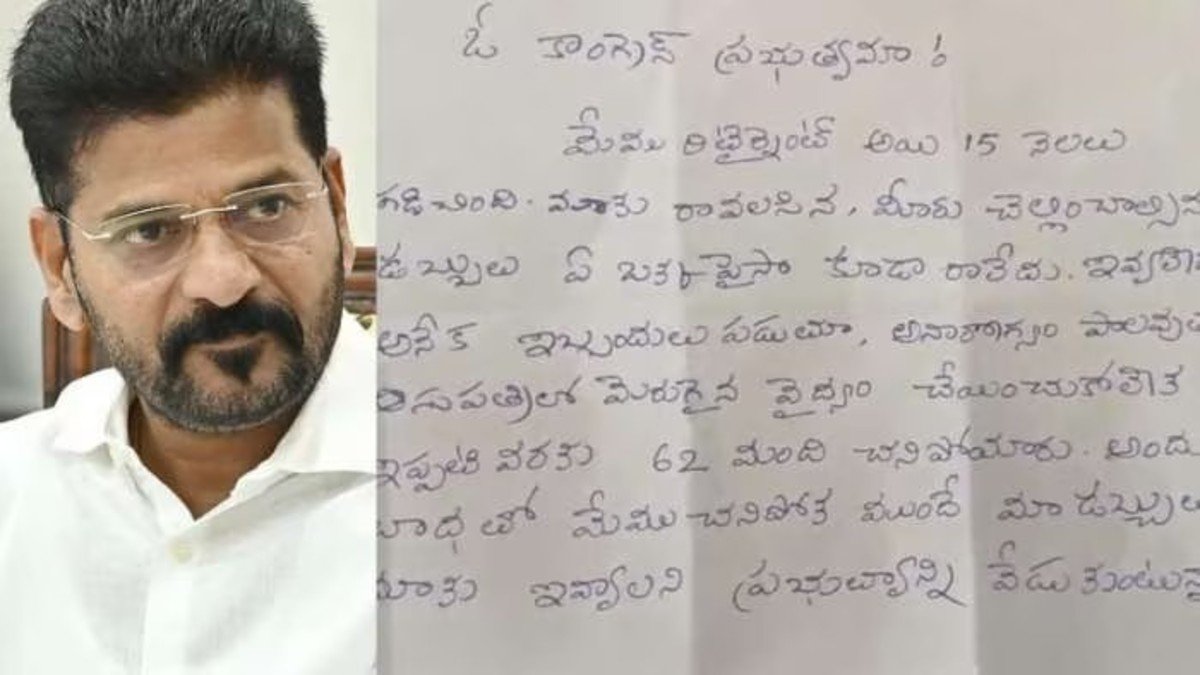 ఓ కాంగ్రెస్ ప్రభుత్వమా!
మేము రిటైర్మెంట్ అయి 15 నెలలు
గడిచింది. మాకు రావలసిన, మీరు చెల్లించాల్సిన
డబ్బులు ఏ ఒక్క పైసా కూడా రాలేదు. ఇవ్వలేక
అనేక ఇబ్బందులు పడుతూ, అనారోగ్యం పాలవుతూ
మెరుగైన వైద్యం చేయించుకోలేక
ఇప్పటి వరకు 62 మంది చనిపోయారు. అందు
బాధతో మేము చనిపోక ముందే మా డబ్బులు
మాకు ఇవ్వాలని ప్రభుత్వాన్ని వేడుకుంటున్నా